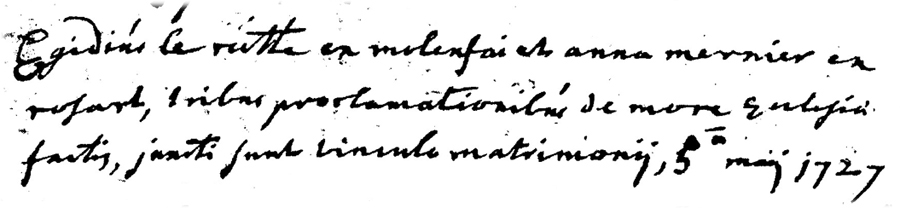 Egidius le rutte en molensai et anna mernier en
rosart, tribus proclamationibus de more Ecclesiæ
factis, juncti sunt vinculo matrimonij, 5ᵃ maij 1727